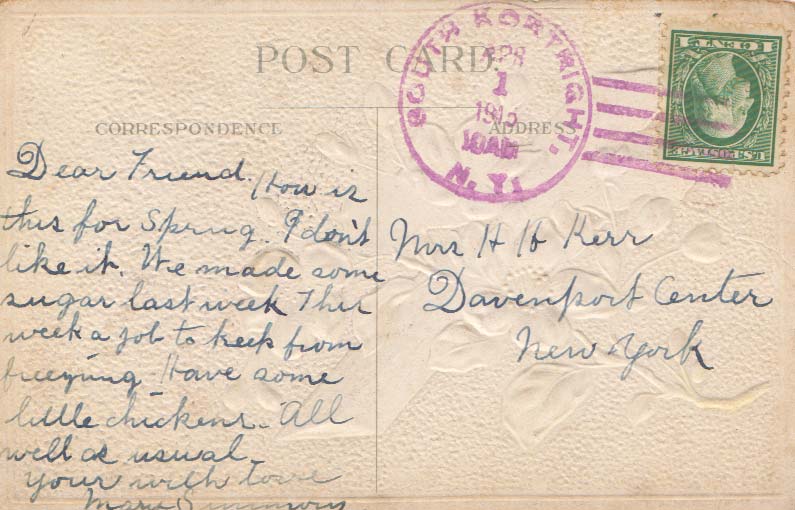 POST CARD.
SOUTH KORTRIGHT,
N.Y.
APR
1
1915
10AM
CORRESPONDENCE
ADDRESS
Dear Friend. How is
this for Spring. I don't
like it. We made some
sugar last week This
week a job to keep from
freezing. Have some
little chickens. All
well as usual.
Your with love
Mary
Mrs H H Kerr
Davenport Center
New York
1 CENT 1
U.S. POSTAGE